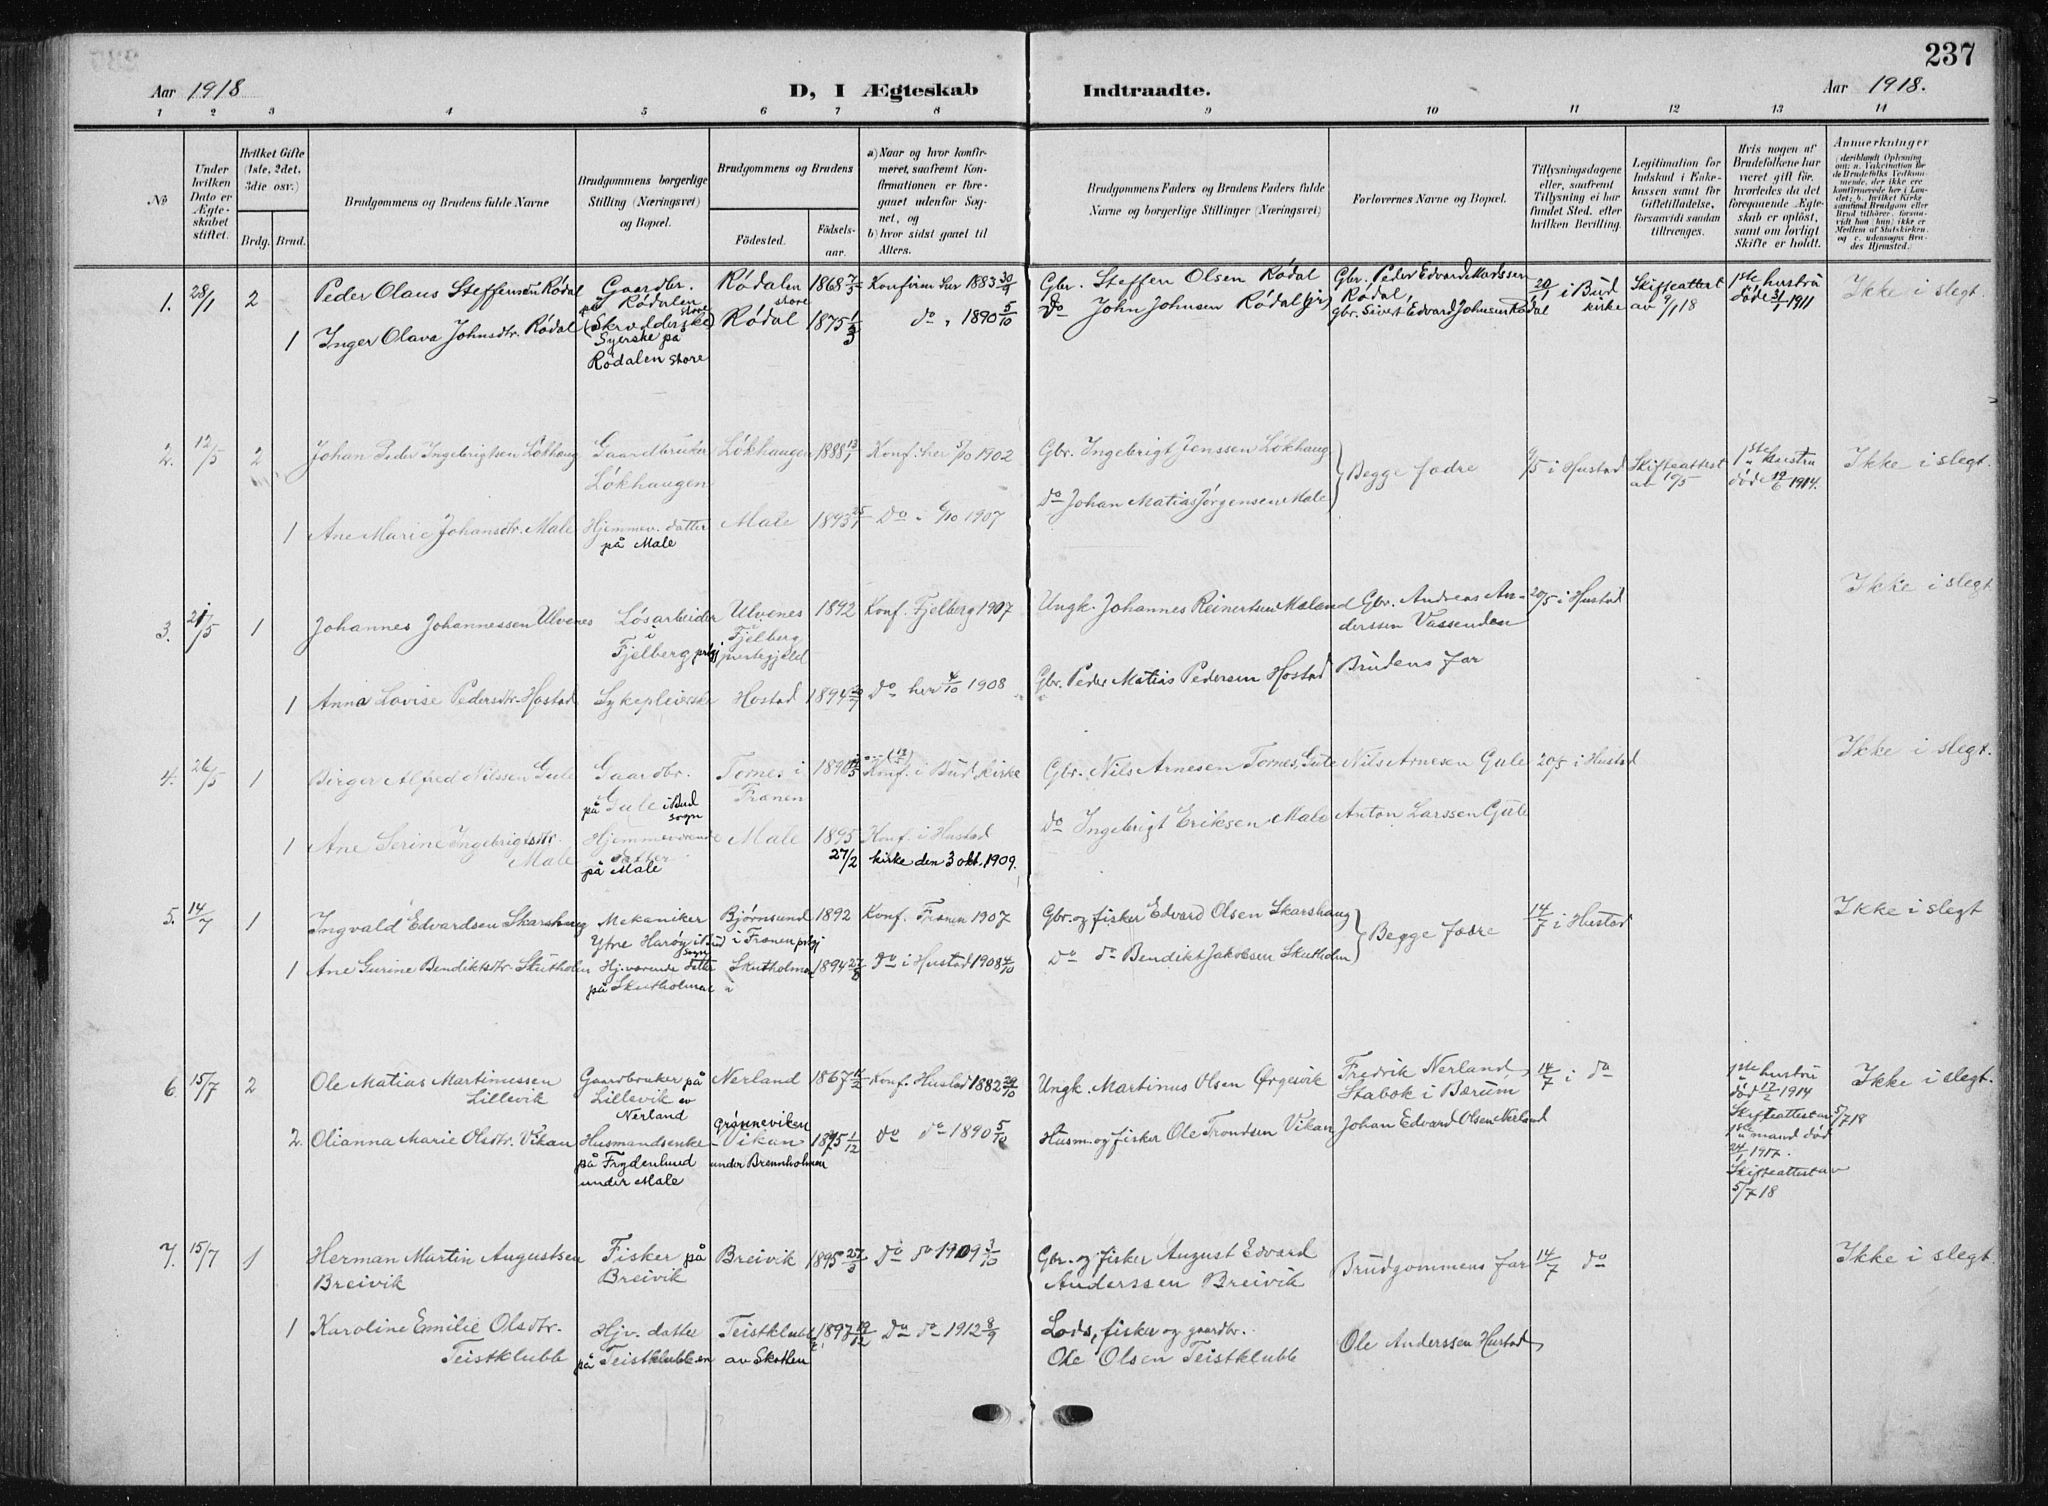 237
Aar 1918
D, I Ægteskab
Indtraadte.
Aar 1918.
1 2 3 4 5 6 7 8 9 10 11 12 13 14
No
Under hvilken Dato er Ægteskabet stiftet.
Hvilket Gifte (1ste, 2det, 3die osv.)
Brdg. Brud.
Brudgommens og Brudens fulde Navne
Brudgommens borgerlige Stilling (Næringsvei) og Bopæl.
Brudgommens og Brudens
Fødested.
Fødselsaar.
a) Naar og hvor konfirmeret, saafremt Konfirmationen er foregaaet udenfor Sognet, og
b) hvor sidst gaaet til Alters.
Brudgommens Faders og Brudens Faders fulde Navne og borgerlige Stillinger (Næringsvei)
Forlovernes Navne og Bopæl.
Tillysningsdagene eller, saafremt Tillysning ei har fundet Sted, efter hvilken Bevilling.
Legitimation for Indskud i Enkekassen samt for Giftetilladelse, forsaavidt saadan tiltrænges.
Hvis nogen af Brudefolkene har været gift før, hvorledes da det foregaaende Ægteskab er opløst, samt om lovligt Skifte er holdt.
Anmærkninger
(deriblandt Oplysning om: a. Vakcination for de Brudefolks Vedkommende, der ikke ere konfirmerede her i Landet; b. hvilket Kirkesamfund Brudgom eller Brud tilhører, forsaavidt han (hun) ikke er Medlem af Statskirken, og c. udensogns Brudes Hjemsted.)
1. 28/1 2 Peder Olaus Steffensen Rødal Gaardbr. på Rødalen store Rødalen store 1868 7/5 Konfirm Bur 1883 30/9 Gbr. Steffen Olsen Rødal Gbr. Peder Edvard Madssen Rødal, 20/1 i Bud kirke Skifteattest av 9/1 18 1ste hustru døde 31/7 1911 Ikke i slegt.
1 Inger Olava Johnsdtr. Rødal (Skredderske) Syerske på Rødalen store Rødal 1875 1/3 do, 1890 5/10 do John Johnsen Rødal (jr) Gbr. Sivert Edvard Johnsen Rødal
2. 12/5 2 Johan Peder Ingebrigtsen Løkhaug Gaardbruker Løkhaugen Løkhaugen 1888 13/1 Konf. her 5/10 1902 Gbr. Ingebrigt Jenssen Løkhaug Begge fædre 9/5 i Hustad Skifteattest av 10/5 1ste hustru død 19/6 1914. Ikke i slegt.
1 Ane Marie Johansdtr. Male Hjemmev. datter på Male Male 1893 25/1 Do i 6/10 1907 Do Johan Matias Jørgensen Male
3. 21/5 1 Johannes Johannessen Ulvenes Løsarbeider i Fjelberg prgj Ulvenes i Fjelberg prestegjeld 1892 Konf. Fjelberg 1907 Ungk. Johannes Reinertsen Maland Gbr. Andreas Anderssen Vassenden 20/5 i Hustad Ikke i slegt
1 Anna Lovise Pedersdtr. Hostad Sykepleierske Hostad 1894 20/7 do her 4/10 1908 Gbr. Peder Matias Pedersen Hostad Brudens far
4. 26/5 1 Birger Alfred Nilssen Gule Gaardbr. på Gule i Bud sogn Tornes i Frænen Konf. i Bud kirke Gbr. Nils Arnesen Tornes, Gule Nils Arnesen Gule 20/5 i Hustad Ikke i slegt.
1 Ane Serine Ingebrigtsdtr. Male Hjemmeværende datter på Male Male 1895 27/2 Konf. i Hustad kirke den 3 okt. 1909. do Ingebrigt Eriksen Male Anton Larssen Gule
5. 14/7 1 Ingvald Edvardsen Skarshaug Mekaniker Ytre Harøy i Bud sogn Bjørnsund i Frænen prgj 1892 Konf. Frænen 1907 Gbr. og fisker Edvard Olsen Skarshaug Begge fædre 14/7 i Hustad Ikke i slegt
1 Ane Gurine Bendiktsdtr. Skutholm Hj.værende datter på Skutholmen Skutholmen 1894 27/8 do i Hustad 1908 4/10 do do Bendikt Jakobsen Skutholm
6. 15/7 2 Ole Matias Martinussen Lillevik Gaardbruker på Lillevik av Nerland Nerland 1867 Konf. Hustad 1882 Ungk. Martinus Olsen Ørgesvik Fredrik Nerland Stabæk i Bærum 14/7 i do 1ste hustru død 17/2 1914 Skifteattest av 5/7 18 Ikke i slegt.
2. Olianna Marie Olsdtr. Vikan Husmandsenke på Frydenlund under Male Grønneviken Vikan under Brennholmen 1875 1/12 do do 1890 5/10 Husm. og fisker Ole Trondsen Vikan Johan Edvard Olsen Nerland 1ste mand død 24/1 1917. Skifteattest av 5/7 18
7. 15/7 1 Herman Martin Augustsen Breivik Fisker på Breivik Breivik 1895 27/3 do do 1909 3/10 Gbr. og fisker August Edvard Anderssen Breivik Brudgommens far 14/7 do Ikke i slegt
1 Karoline Emilie Olsdtr. Teistklubb Hjv. datter på Teistklubben Teistklubb av Skotten 1897 19/12 do do 1912 8/9 Lods, fisker og gaardbr. Ole Olsen Teistklubb Ole Anderssen Hustad